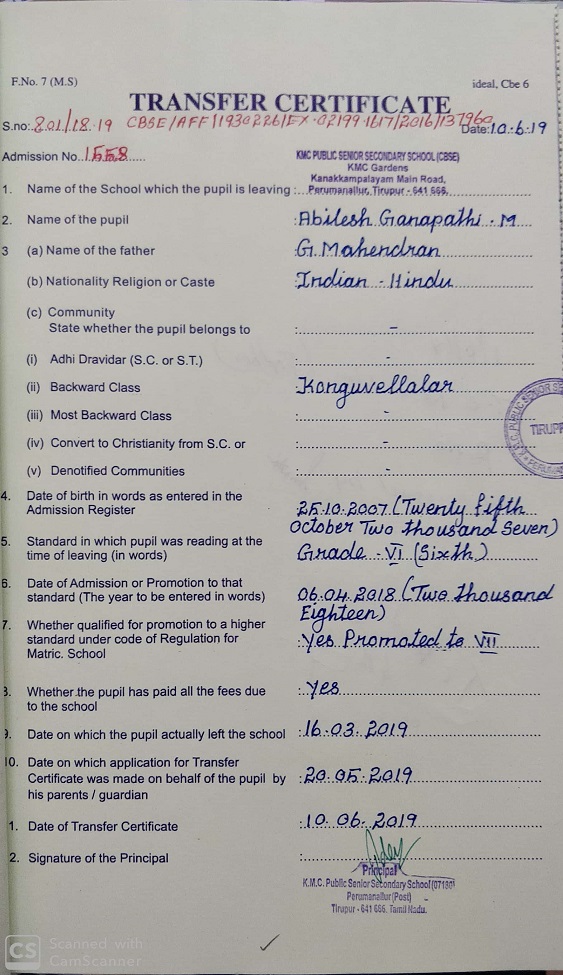 F.No. 7 (M.S) ideal, Cbe 6
TRANSFER CERTIFICATE
S.no:.801/18-19 CBSE/AFF/1930226/EX-02199-1617/2016/137960 Date:10.6.19
Admission No.1558 KMC PUBLIC SENIOR SECONDARY SCHOOL (CBSE)
KMC Gardens
Kanakkampalayam Main Road,
1. Name of the School which the pupil is leaving : Perumanallur, Tirupur - 641 666.
2. Name of the pupil : Abilesh Ganapathi - M
3 (a) Name of the father : G. Mahendran
(b) Nationality Religion or Caste : Indian - Hindu
(c) Community
State whether the pupil belongs to : -
(i) Adhi Dravidar (S.C. or S.T.) : -
(ii) Backward Class : Konguvellalar
(iii) Most Backward Class : -
(iv) Convert to Christianity from S.C. or : -
(v) Denotified Communities : -
4. Date of birth in words as entered in the
Admission Register : 25.10.2007 (Twenty fifth
October Two thousand Seven)
5. Standard in which pupil was reading at the
time of leaving (in words) : Grade - VI (Sixth)
6. Date of Admission or Promotion to that
standard (The year to be entered in words) : 06.04.2018 (Two thousand
Eighteen)
7. Whether qualified for promotion to a higher
standard under code of Regulation for : Yes Promoted to VII
Matric. School
8. Whether the pupil has paid all the fees due : Yes
to the school
9. Date on which the pupil actually left the school : 16.03.2019
10. Date on which application for Transfer
Certificate was made on behalf of the pupil by : 20.05.2019
his parents / guardian
1. Date of Transfer Certificate : 10.06.2019
2. Signature of the Principal :
Principal
K.M.C. Public Senior Secondary School
Perumanallur (Post)
Tirupur - 641 666, Tamil Nadu.
K.M.C. PUBLIC SENIOR SE
TIRUPP
CS Scanned with
CamScanner